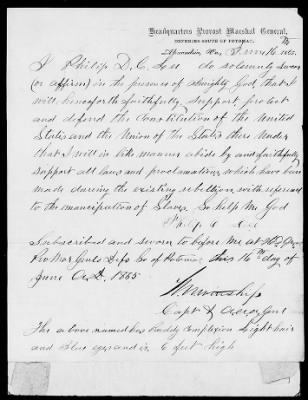 Headquarters Provost Marshal General,
DEFENCES SOUTH OF POTOMAC,
Alexandria, Va., June 16 1865.
I Philip D. C. Lee do solemnly Swear
(or affirm) in the presence of Almighty God, that I
will henceforth faithfully support protect
and defend the Constitution of the United
States and the Union of the States there Under
that I will in like manner abide by and faithfully
support all laws and proclamations which have been
made during the existing rebellion with reference
to the emancipation of Slaves So help Me God
Philip D C Lee
Subscribed and Sworn to before Me at
Pro Mar Genls So of Potomac this 16th day of
June A.D. 1865
Winship
Capt &
The above named has Ruddy Complexion Light hair
and Blue eyes and is 6 feet high